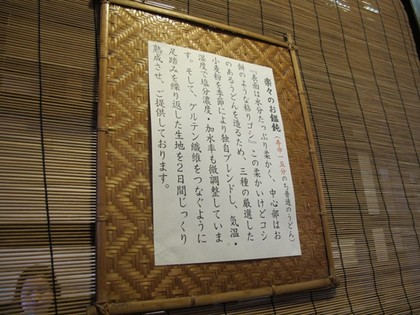 楽々のお饂飩（寿命一五分のち普通のうどん）
「表面は水分たっぷり柔かく、中心部はお
餅のような粘りゴシ」この柔かいけどコシ
のあるうどんを造るため、三種の厳選した
小麦粉を季節により独自ブレンドし、気温・
湿度で塩分濃度・加水率も微調整していま
す。そして、グルテン繊維をつなぐように
足踏みを繰り返した生地を２日間じっくり
熟成させ、ご提供しております。